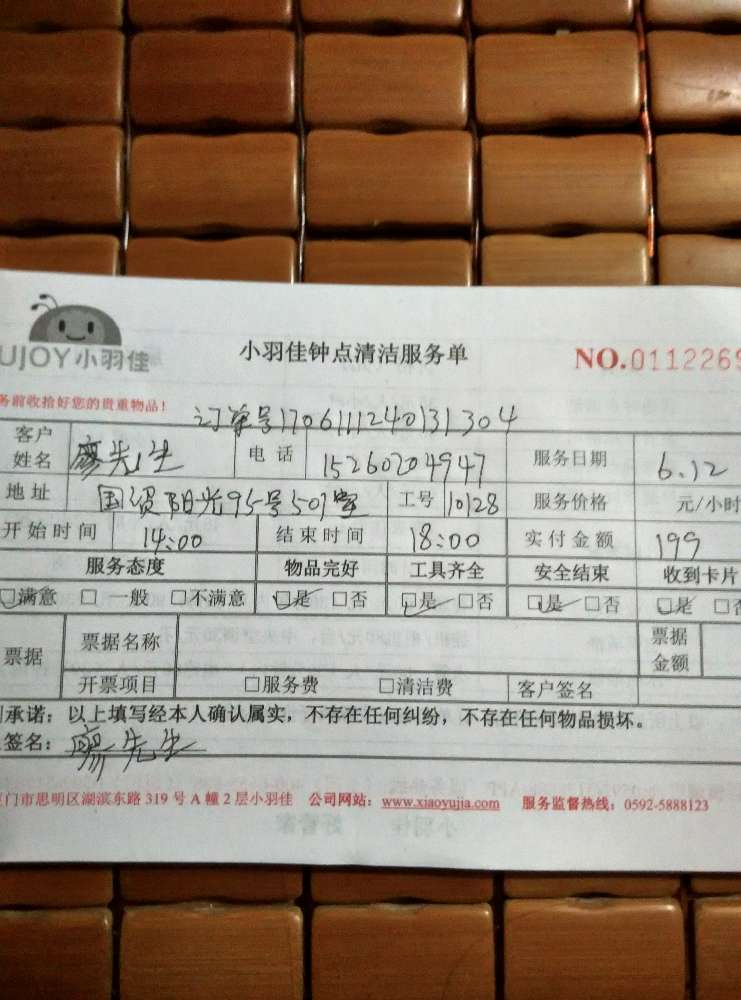 UJOY小羽佳
小羽佳钟点清洁服务单 NO.0112269
务前收拾好您的贵重物品！
订单号170611124013１304
客户姓名 廖先生 电话 15260204947 服务日期 6.12
地址 国贸阳光95号501室 工号 10128 服务价格 元/小时
开始时间 14:00 结束时间 18:00 实付金额 199
服务态度 物品完好 工具齐全 安全结束 收到卡片
☑满意 □一般 □不满意 ☑是 □否 ☑是 □否 ☑是 □否 ☑是 □否
票据 票据名称 票据金额
开票项目 □服务费 □清洁费 客户签名
承诺：以上填写经本人确认属实，不存在任何纠纷，不存在任何物品损坏。
签名：廖先生
门市思明区湖滨东路 319 号 A 幢 2 层小羽佳 公司网站：www.xiaoyujia.com 服务监督热线：0592-5888123